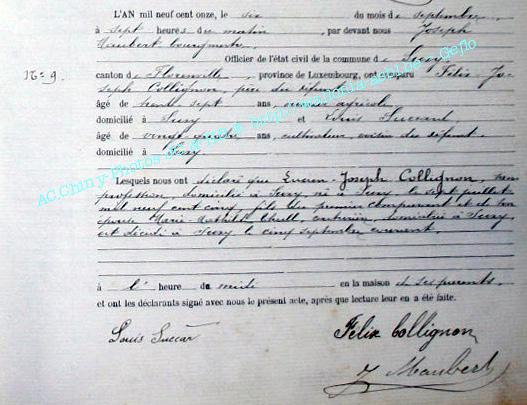 L'AN mil neuf cent onze, le six du mois de septembre
à sept heures du matin, par devant nous Joseph
Maubert bourgmestre
Officier de l'état civil de la commune de Suxy
N° 9.
canton de Florenville, province de Luxembourg, ont comparu Félix-Jo-
seph Collignon, père du défunt
âgé de trente sept ans, ouvrier agricole
domicilié à Suxy et Louis Succard
âgé de vingt quatre ans, cultivateur, voisin du défunt
domicilié à Suxy.
Lesquels nous ont déclaré que Lucien-Joseph Collignon, sans
profession, domicilié à Suxy, né à Suxy le sept juillet
mil neuf cent cinq, fils du premier comparant et de son
épouse Marie domiciliée à Suxy,
est décédé à Suxy le cinq septembre courant.
à l' heure de midi en la maison de ses parents.
et ont les déclarants signé avec nous le présent acte, après que lecture leur en a été faite.
Louis Succar Félix Collignon
J Maubert
AC Chiny Photos